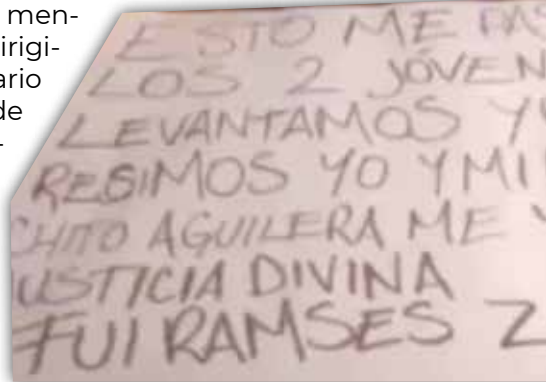 men-
irigi-
ario
de
-
ESTO ME PAS
LOS 2 JÓVEN
LEVANTAMOS Y
RESIMOS YO Y MI
CHITO AGUILERA ME
USTICIA DIVINA
FUI RAMSES Z